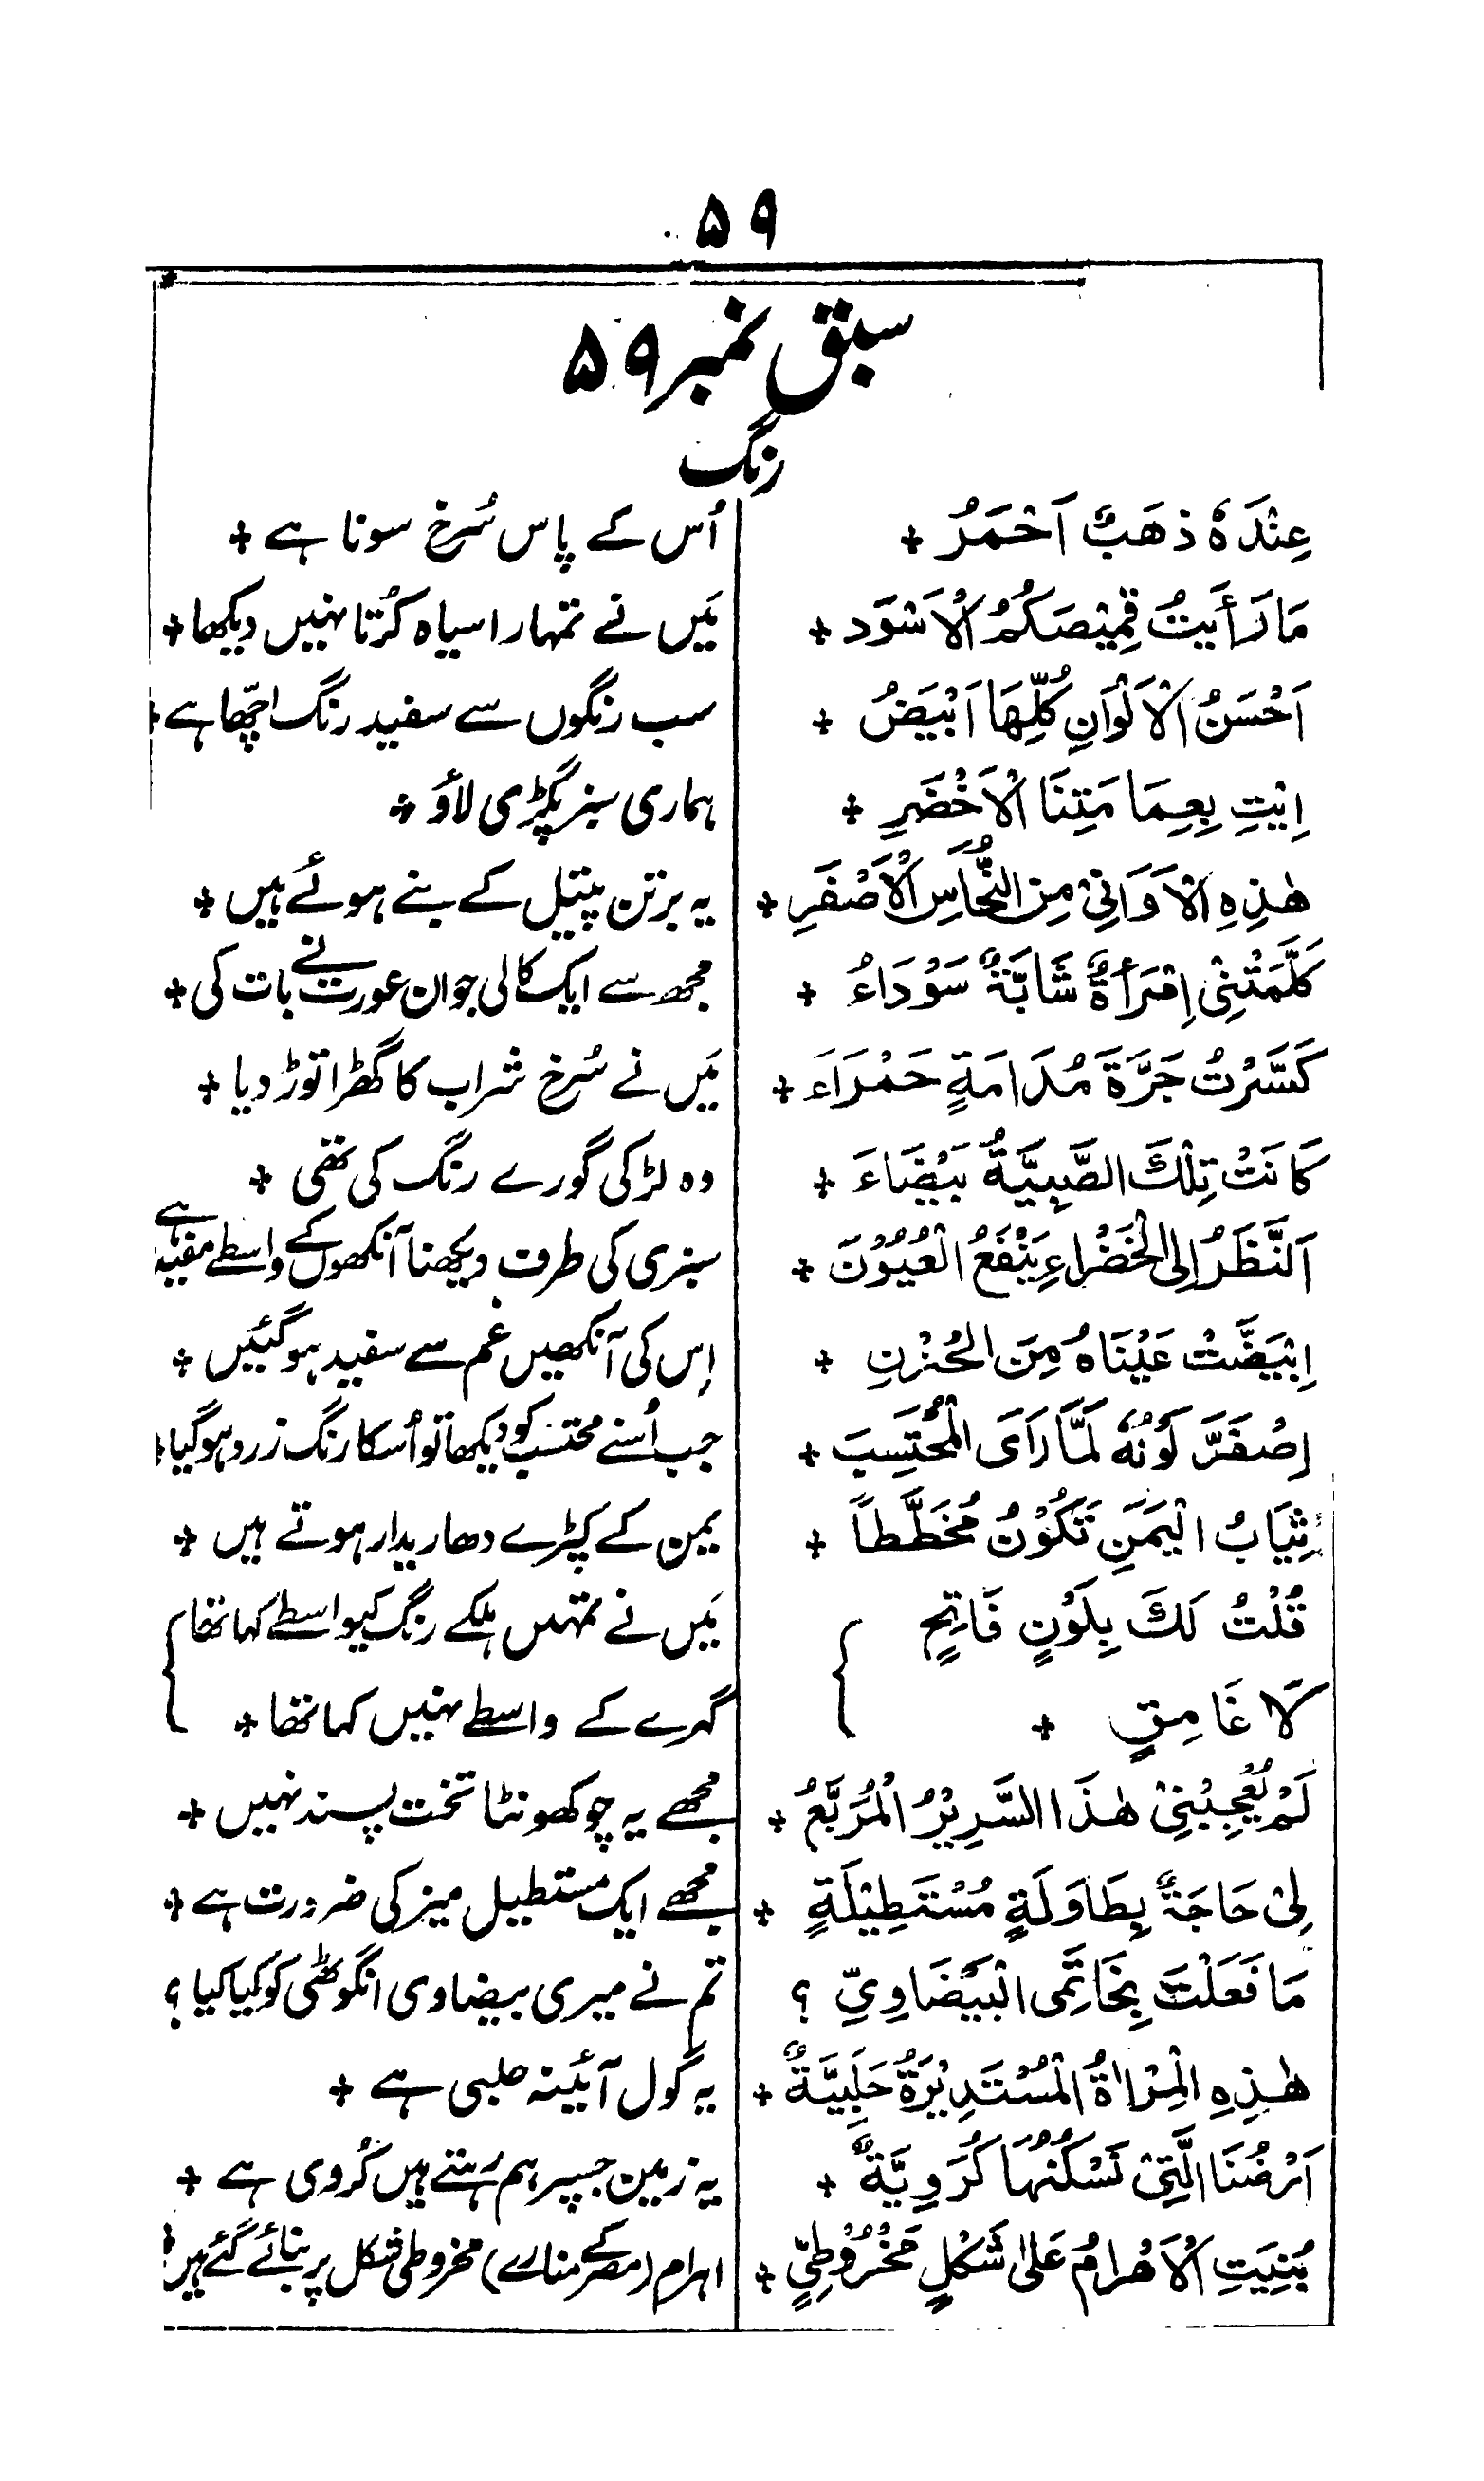 ۵۹
سبق نمبر ۵۹
رنگ
عِنْدَهٗ ذَهَبٌ اَحْمَرُ +
اُس کے پاس سُرخ سونا ہے +
مَا رَأَيْتُ قَمِيْصَكُمُ الْاَسْوَد +
مَیں نے تمہارا سیاہ کُرتا نہیں دیکھا +
اَحْسَنُ الْاَلْوَانِ كُلِّهَا اَبْيَضُ +
سب رنگوں سے سفید رنگ اچھّا ہے +
اِيْتِ بِعِمَامَتِنَا الْاَخْضَرِ +
ہماری سبز پگڑی لاؤ +
هٰذِهِ الْاَوَانِیْ مِنَ النُّحَاسِ الْاَصْفَرِ +
یہ برتن پیتل کے بنے ہوئے ہیں +
كَلَّمَتْنِیْ اِمْرَأَةٌ شَابَّةٌ سَوْدَاءُ +
مجھ سے ایک کالی جوان عورت نے بات کی +
كَسَّرْتُ جَرَّةَ مُدَامَةٍ حَمْرَاءَ +
مَیں نے سُرخ شراب کا گھڑا توڑ دیا +
كَانَتْ تِلْكَ الصَّبِيَّةُ بَيْضَاءَ +
وہ لڑکی گورے رنگ کی تھی +
اَلنَّظَرُ اِلَی الْخَضْرَاءِ يَنْفَعُ الْعُيُوْنَ +
سبزی کی طرف دیکھنا آنکھوں کے واسطے مفید ہے
اِبْيَضَّتْ عَيْنَاهُ مِنَ الْحُزْنِ +
اِس کی آنکھیں غم سے سفید ہوگئیں +
اِصْفَرَّ لَوْنُهٗ لَمَّا رَاَی الْمُحْتَسِبَ +
جب اُسنے محتسب کو دیکھا تو اُسکا رنگ زرد ہوگیا +
ثِيَابُ الْيَمَنِ تَكُوْنُ مُخَطَّطاً +
یمن کے کپڑے دھاریدار ہوتے ہیں +
قُلْتُ لَكَ بِلَوْنٍ فَاتِحٍ
مَیں نے تمہیں ہلکے رنگ کیواسطے کہا تھا
لَا غَامِقٍ +
گہرے کے واسطے نہیں کہا تھا +
لَمْ يُعْجِبْنِیْ هٰذَا السَّرِيْرُ الْمُرَبَّعُ +
مجھے یہ چوکھونٹا تخت پسند نہیں +
لِیْ حَاجَةٌ بِطَاوَلَةٍ مُسْتَطِيْلَةٍ +
مجھے ایک مستطیل میز کی ضرورت ہے +
مَا فَعَلْتَ بِخَاتَمِی الْبَيْضَاوِیِّ ؟
تم نے میری بیضاوی انگوٹھی کو کیا کیا ؟
هٰذِهِ الْمِرْاٰةُ الْمُسْتَدِيْرَةُ حَلَبِيَّةٌ +
یہ گول آئینہ حلبی ہے +
اَرْضُنَا الَّتِیْ نَسْكُنُهَا كُرَوِيَّةٌ +
یہ زمین جسپر ہم رہتے ہیں کُروی ہے +
بُنِيَتِ الْاَهْرَامُ عَلٰی شَكْلٍ مَخْرُوْطِیٍّ +
اہرام (مصر کے منارے) مخروطی شکل پر بنائے گئے ہیں +